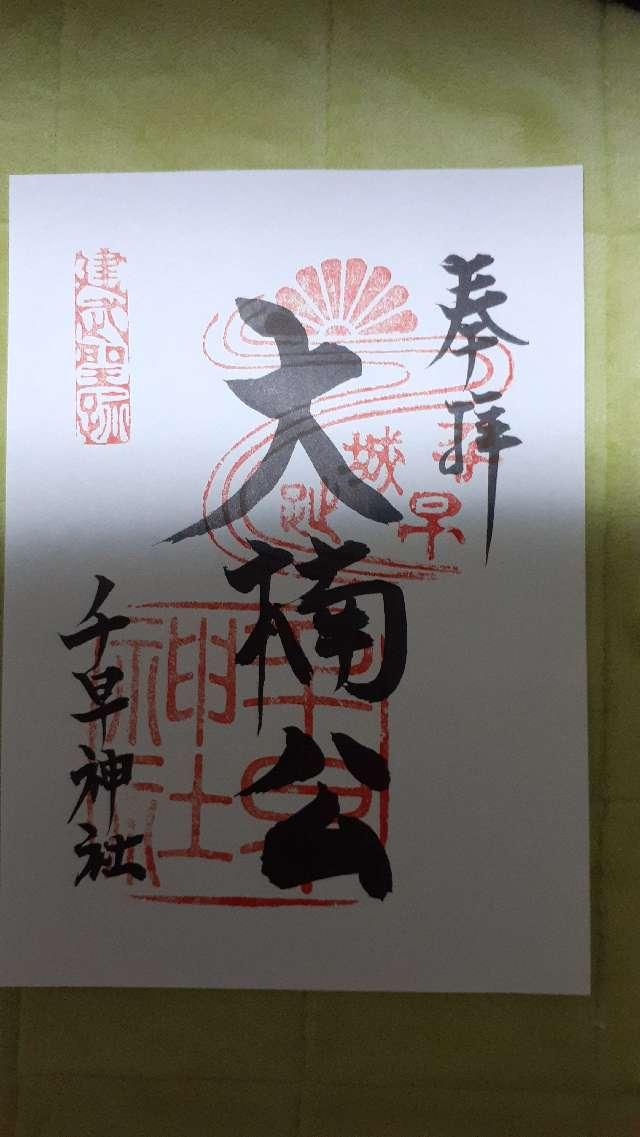 奉拝
千早
城
趾
大楠公
建武聖跡
千早神社
千早
神社